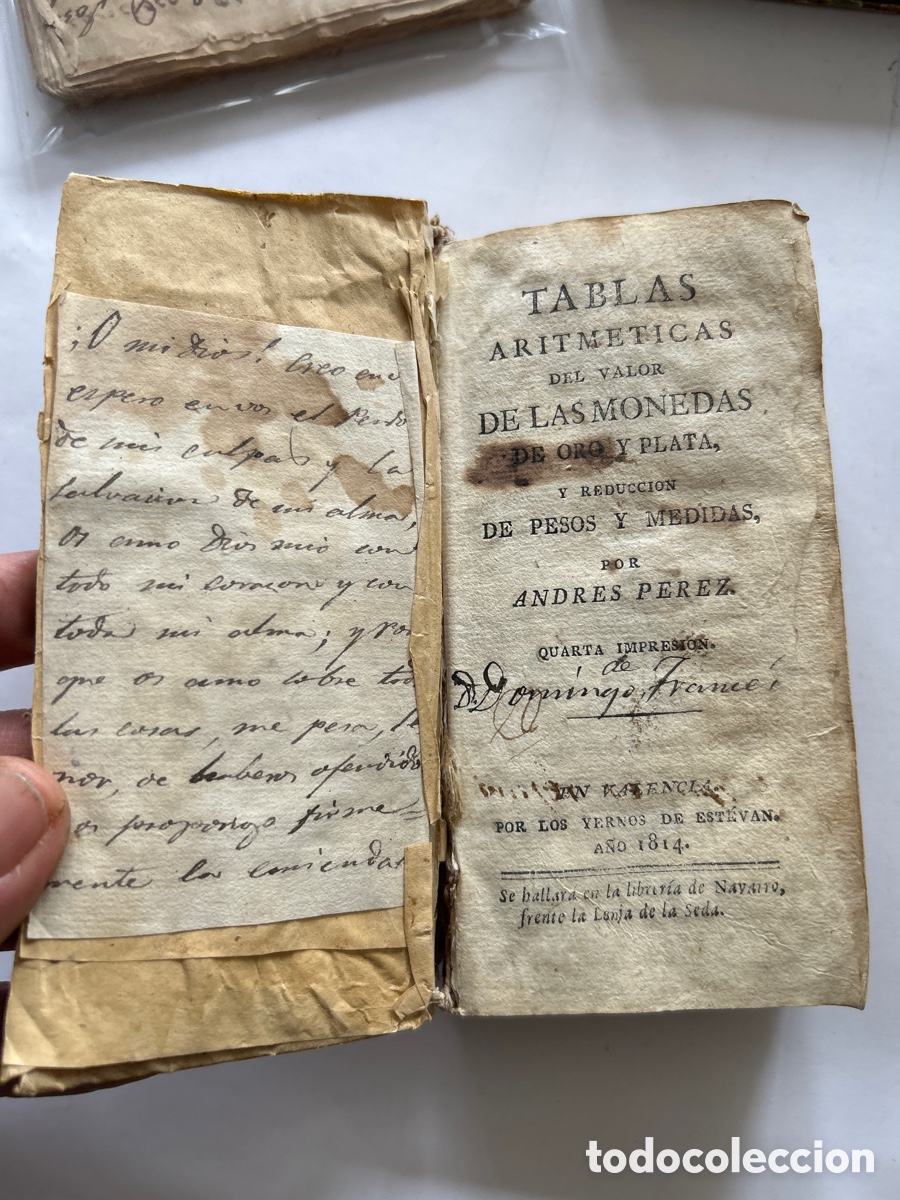 ¡O mi Dios! Creo en v
espero en vos el Perdo
de mis culpas y la
salvacion de mi alma,
Os amo Dios mio con
todo mi corazon y con
toda mi alma; y Por
que os amo sobre tod
las cosas, me pesa, Se
ñor, de haberos ofendido
os propongo firme=
mente la enmienda
TABLAS
ARITMETICAS
DEL VALOR
DE LAS MONEDAS
DE ORO Y PLATA,
Y REDUCCION
DE PESOS Y MEDIDAS,
POR
ANDRES PEREZ.
QUARTA IMPRESION.
de
D. Domíngo Francés
EN VALENCIA.
POR LOS YERNOS DE ESTÉVAN.
AÑO 1814.
Se hallará en la librería de Navarro,
frente la Lonja de la Seda.
todocoleccion